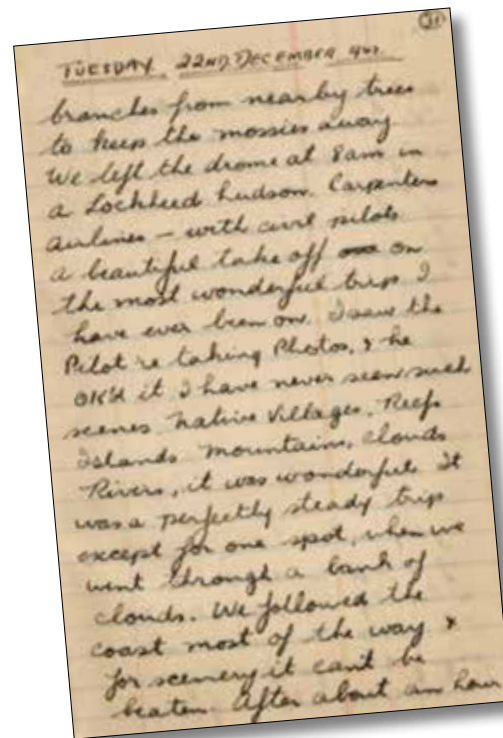 31
TUESDAY 22ND. DECEMBER
branches from nearby trees
to keep the mossies away
We left the drome at 8am in
a Lockheed hudson. Carpenters
airlines – with civil pilots
a beautiful take off on
the most wonderful trip I
have ever been on. I saw the
Pilot 're taking Photos, & he
OK'd it I have never seen such
scenes. Native Villages, Reefs
Islands mountains, clouds
Rivers, it was wonderful. It
was a perfectly steady trip
except for one spot, when we
went through a bank of
clouds. We followed the
coast most of the way &
for scenery it can't be
beaten. After about an hour